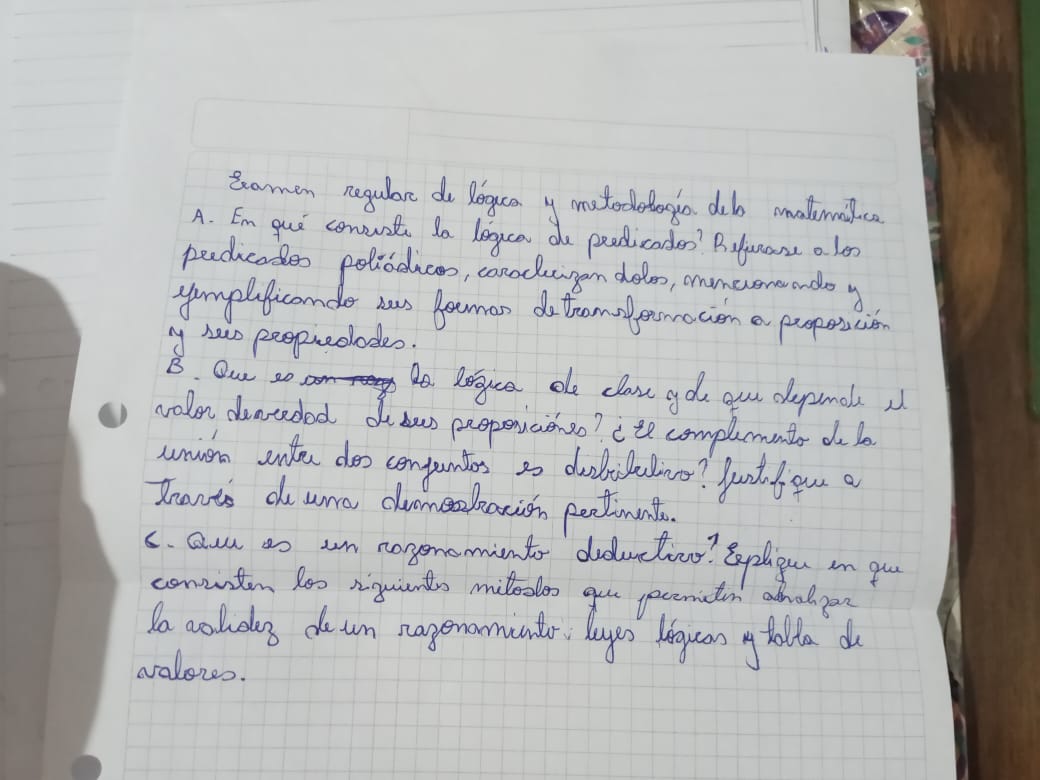 Examen regular de lógica y metodología dela matemática
A. En qué consiste la lógica de predicados? Refierase a los
predicados poliádicos, caracterizandolos, mencionando y
ejemplificando sus formas de transformación a proposición
y sus propiedades.
B. Que es la lógica de clase y de que depende el
valor deverdad de sus proposiciónes? ¿El complemento de la
unión entre dos conjuntos es distributivo? Justifique a
través de una demostración pertinente.
C. Que es un razonamiento deductivo? Explique en que
consisten los siguientes métodos que permiten analizar
la validez de un razonamiento: leyes lógicas y tabla de
valores.